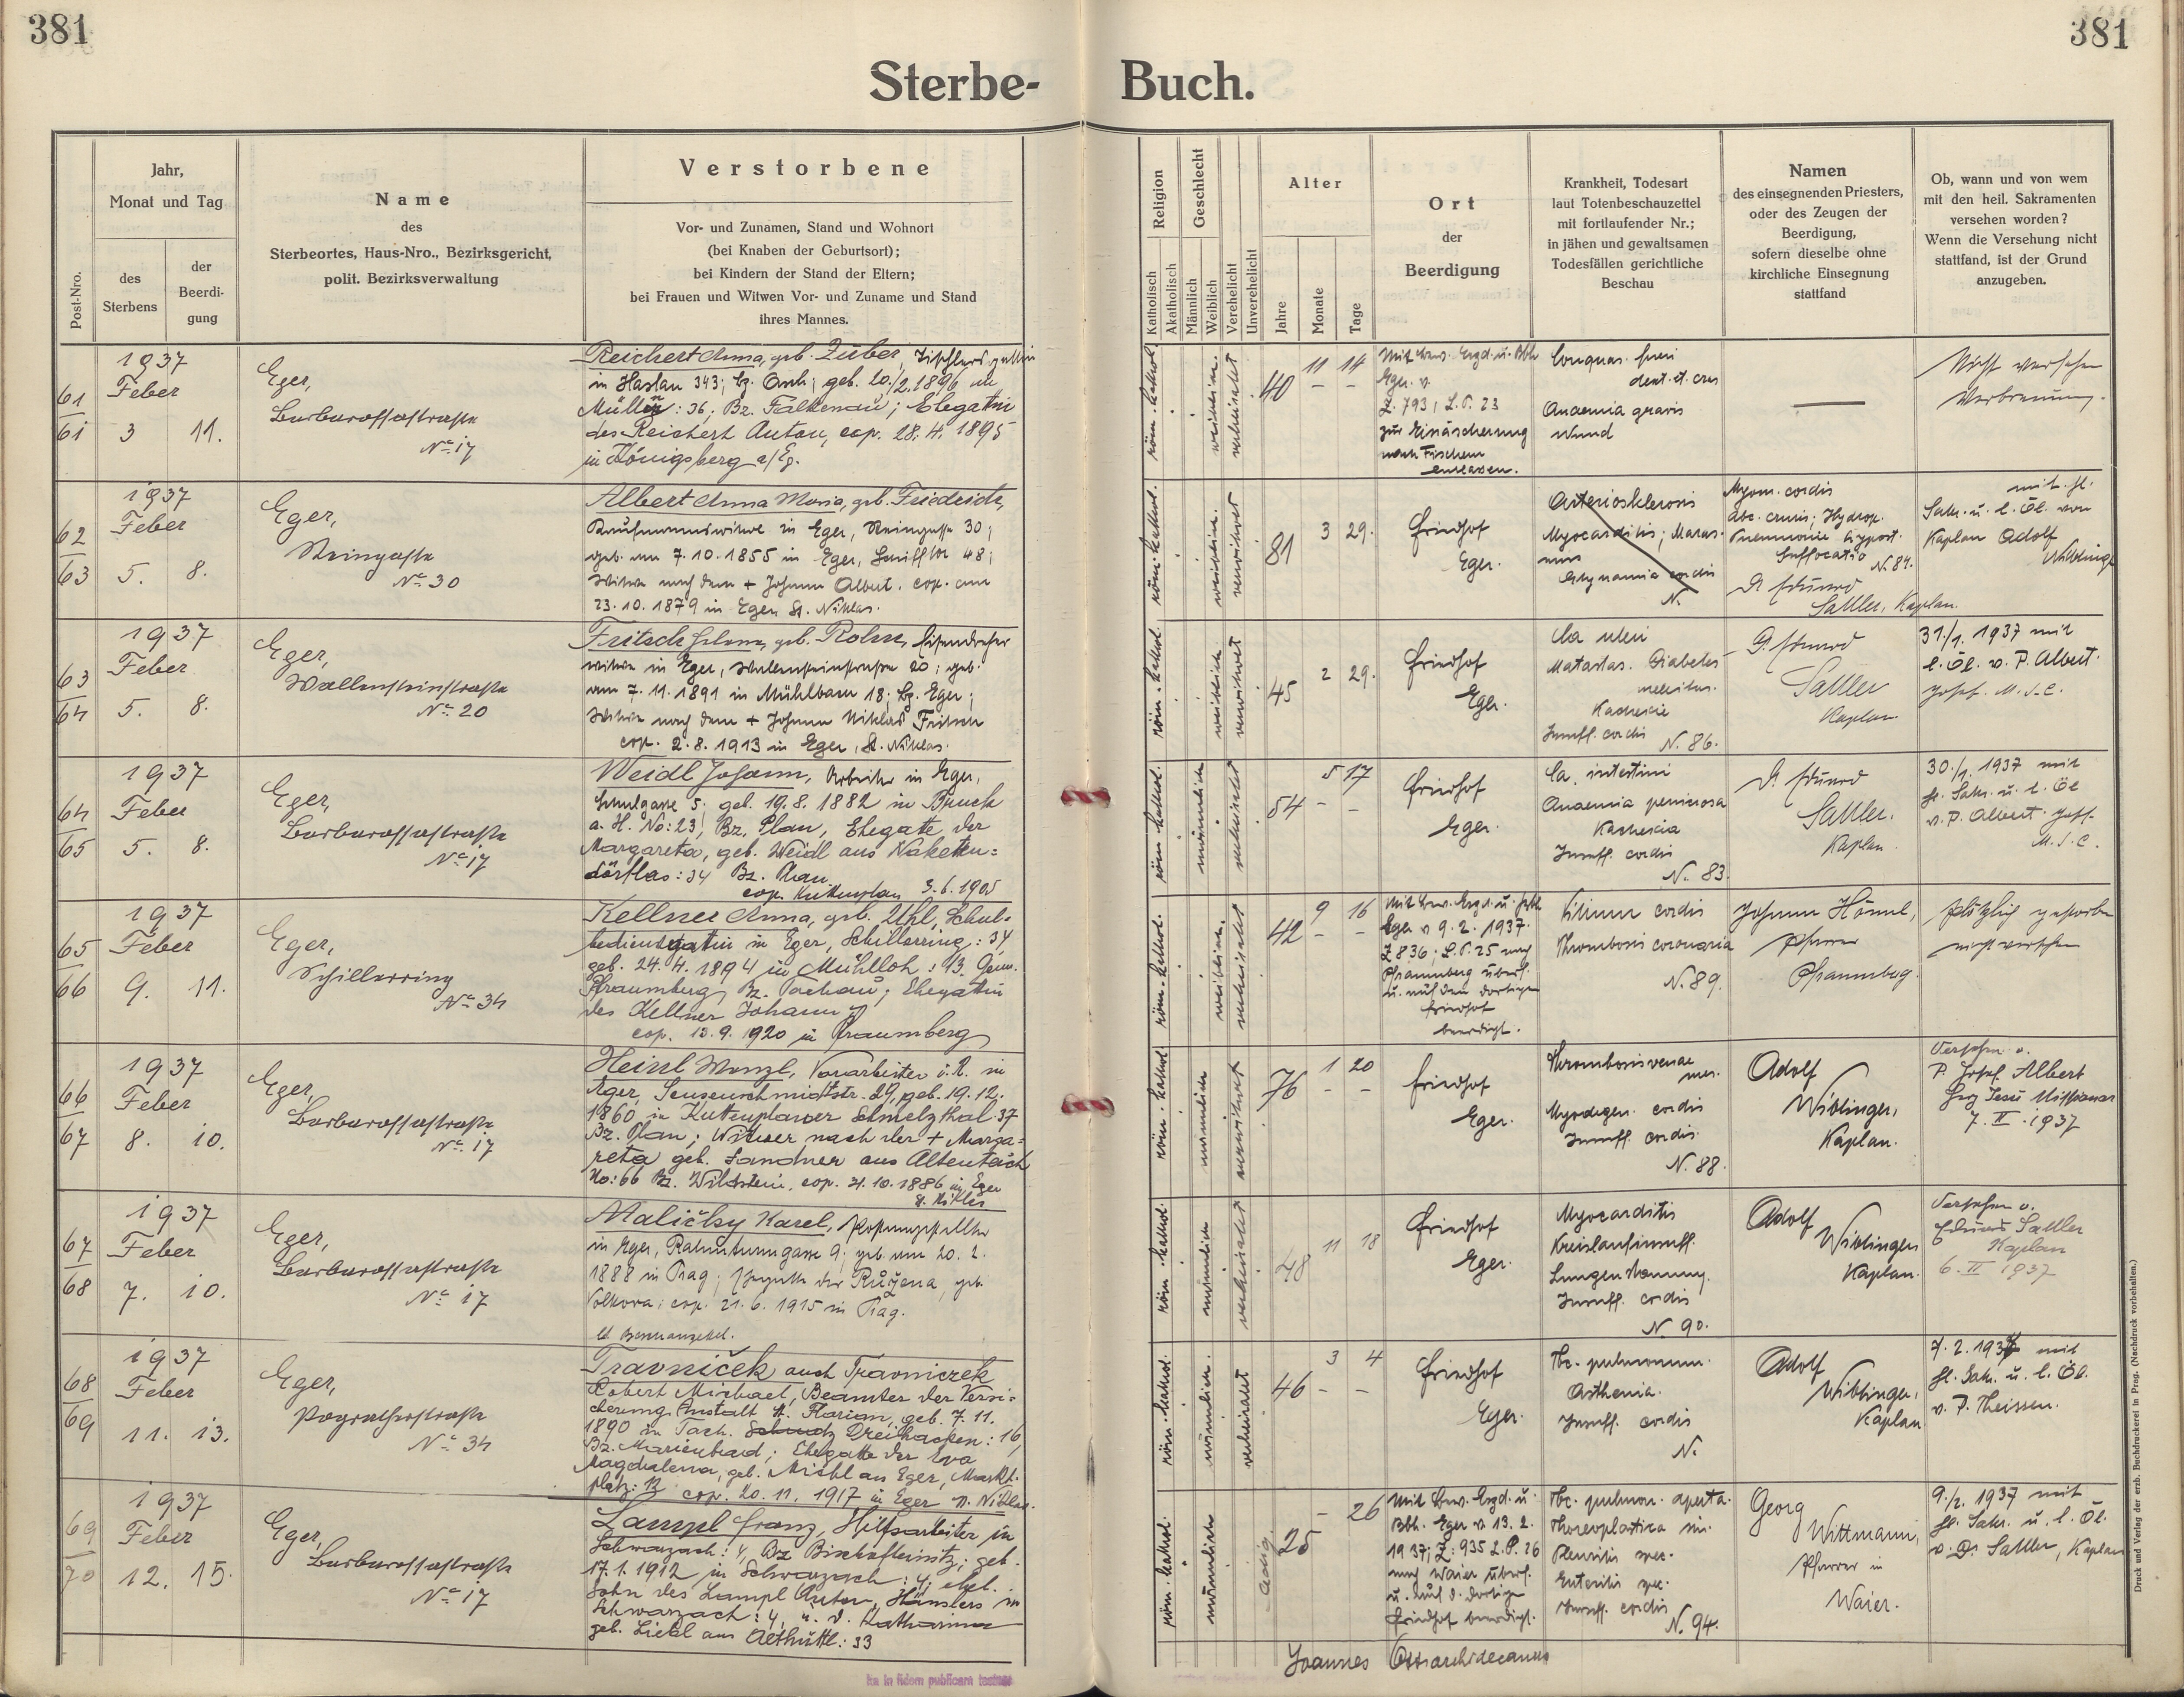 381
381
Sterbe-
Buch.
Post-Nro.
Jahr,
Monat und Tag
des
Sterbens
der
Beerdi-
gung
Name
des
Sterbeortes, Haus-Nro., Bezirksgericht,
polit. Bezirksverwaltung
Verstorbene
Vor- und Zunamen, Stand und Wohnort
(bei Knaben der Geburtsort);
bei Kindern der Stand der Eltern;
bei Frauen und Witwen Vor- und Zuname und Stand
ihres Mannes.
Religion
Katholisch
Akatholisch
Geschlecht
Männlich
Weiblich
Verehelicht
Unverehelicht
Alter
Jahre
Monate
Tage
Ort
der
Beerdigung
Krankheit, Todesart
laut Totenbeschauzettel
mit fortlaufender Nr.;
in jähen und gewaltsamen
Todesfällen gerichtliche
Beschau
Namen
des einsegnenden Priesters,
oder des Zeugen der
Beerdigung,
sofern dieselbe ohne
kirchliche Einsegnung
stattfand
Ob, wann und von wem
mit den heil. Sakramenten
versehen worden?
Wenn die Versehung nicht
stattfand, ist der Grund
anzugeben.
61
61
1937
Feber
3 11.
Eger,
Barbarossastraße
No 17
Reichert Anna, geb. Zuber, Tischlersgattin
in Haslau 343; Bz. Asch; geb. 20./2.1896 in
Mülln: 36; Bz. Falkenau; Ehegattin
des Reichert Anton, cop. 28.4.1895
in Königsberg a/Eg.
röm. kathol.
weiblich.
verheiratet
40 11 14
Mit Bew. Bzgd. u. Bbh.
Eger v.
Z. 793; L.P. 23
zur Einäscherung
nach Fischern
entlassen.
dext. et. crus
Anaemia gravis
Nicht versehen
Verbrennung.
62
63
1937
Feber
5. 8.
Eger,
Steingasse
No 30
Albert Anna Maria, geb. Friedrich,
Kaufmannswitwe in Eger, Steingasse 30;
geb. am 7.10.1855 in Eger, Schifftor 48;
Witwe nach dem + Johann Albert. cop. am
23.10.1879 in Eger St. Niklas.
röm. kathol.
weiblich.
verwitwet
81 3 29.
Friedhof
Eger.
Arteriosklerosis
Myocarditis; Maras-
mus
Adynamia cordis
N.
Myom. cordis
Abc. cruris; Hydrop.
Pneumonie hypost.
Suffocatio
N. 84.
D. Eduard
Sattler, Kaplan.
mit hl.
Sakr. u. l. Öl. von
Kaplan Adolf
Wiblinger
63
64
1937
Feber
5. 8.
Eger,
Wallensteinstraße
No 20
Fritsch Helena, geb. Rohm, Eisendreher
witwe in Eger, Wallensteinstraße 20; geb.
am 7.11.1891 in Mühlbach 18; Bz. Eger;
Witwe nach dem + Johann Niklas Fritsch
cop. 2.8.1913 in Eger, St. Niklas.
röm. kathol.
weiblich
verwitwet
45 2 29.
Friedhof
Eger.
Ca uteri
Metastas. Diabetes
melitus.
Kachexie
Insuff. cordis
N. 86.
D. Eduard
Sattler
Kaplan.
31/1. 1937 mit
l. Öl. v. P. Albert
Josef. M.S.C.
64
65
1937
Feber
5. 8.
Eger,
Barbarossastraße
No 17
Weidl Johann, Arbeiter in Eger,
Schulgasse 5. geb. 19.8.1882 in Bruck
a. H. No: 23; Bz. Plan, Ehegatte der
Margareta, geb. Weidl aus Naketen=
dörflas: 34 Bz. Plan
cop. Kuttenplan 3.6.1905
röm. kathol.
männlich
verheiratet
54 5 17
Friedhof
Eger.
Ca. intestini
Anaemia perniciosa
Kachexia
Insuff. cordis
N. 83.
D. Eduard
Sattler.
Kaplan.
30./1. 1937 mit
hl. Sakr. u. l. Öl
v. P. Albert Josef.
M.S.C.
65
66
1937
Feber
9. 11.
Eger,
Schillerring
No 34
Kellner Anna, geb. Uhl, Schul-
dienersgattin in Eger, Schillerring: 34,
geb. 24.4.1894 in Mühlloh: 13. Gem.
Pfraumberg Bz. Tachau; Ehegattin
des Kellner Johann
cop. 13.9.1920 in Pfraumberg
röm. kathol.
weiblich.
verheiratet
42 9 16
Mit Bew. Bzgd. u. Bbh
Eger v 9.2.1937.
Z 836; L.P. 25 nach
Pfraumberg überf.
u. auf dem dortigen
Friedhof
beerdigt.
Vitium cordis
Thrombosis coronaria
N. 89.
Johann Hänel,
Pfarrer
Pfraumberg.
Plötzlich gestorben
nicht versehen
66
67
1937
Feber
8. 10.
Eger,
Barbarossastraße
No 17
Heinl Wenzl, Vorarbeiter i. R. in
Eger, Sensenschmidtstr. 29, geb. 19.12.
1860 in Kuttenplaner Schmelzthal 37
Bz. Plan; Witwer nach der + Marga=
reta geb. Sandner aus Altenteich
No: 66 Bz. Wildstein. cop. 21.10.1886 in Eger
St. Niklas
röm. kathol.
männlich
verwitwet
76 1 20
Friedhof
Eger.
Thrombosis venae
mes.
Myodegen. cordis
Insuff. cordis
N. 88.
Adolf
Wiblinger,
Kaplan.
Versehen v.
P. Josef Albert
Herz Jesu Missionar
7. II. 1937
67
68
1937
Feber
7. 10.
Eger,
Barbarossastraße
No 17
Maličky Karel,
in Eger, Rahmturmgasse 9; geb. am 20.2.
1888 in Prag; Ehegatte der Růžena, geb.
Volkova; cop. 21.6.1915 in Prag.
röm. kathol.
männlich
verheiratet
48 11 18
Friedhof
Eger.
Myocarditis
Kreislaufinsuff.
Lungenstauung.
Insuff. cordis
N. 90.
Adolf
Wiblinger
Kaplan.
Versehen v.
Eduard Sattler
Kaplan
6. II 1937
68
69
1937
Feber
11. 13.
Eger,
Pograthstraße
No 34
Travniček auch Travniczek
Robert Michael, Beamter der Versi-
cherung Anstalt St. Florian, geb. 7.11.
1890 in Tach. Dreihacken: 16,
Bz. Marienbad; Ehegatte der Eva
Magdalena, geb. Miehl aus Eger, Markt.
platz: 12 cop. 20.11.1917 in Eger St. Niklas.
röm. kathol.
männlich.
verheiratet
46 3 4
Friedhof
Eger.
Tbc. pulmonum.
Asthenia.
Insuff. cordis
N.
Adolf
Wiblinger,
Kaplan
7.2.1937 mit
hl. Sakr. u. l. Öl.
v. P. Theissen.
69
70
1937
Feber
12. 15.
Eger,
Barbarossastraße
No 17
Lampl Franz, Hilfsarbeiter in
Schwarzach: 4, Bz Bischofteinitz; geb.
17.1.1912 in Schwarzach: 4; ehel.
Sohn des Lampl Anton, Häuslers in
Schwarzach: 4, u. d. Katharina
geb. Liebl aus Althüttl.: 33
röm. kathol.
männlich
ledig
25 - 26
Mit Bew. Bzgd. u.
Bbh. Eger v 13.2.
1937; Z: 935 L.P. 26
nach Waier überf.
u. auf d. dortigen
Friedhof beerdigt.
Tbc. pulmon. aperta.
Thoracoplastica sin.
Pleuritis spec.
Enteritis spec.
Insuff. cordis
N. 94.
Georg
Wittmann,
Pfarrer in
Waier.
9./2. 1937 mit
hl. Sakr. u. l. Öl.
v. D. Sattler, Kaplan
Joannes Ott archidecanus
Ita in fidem publicam testor
Druck und Verlag der erzb. Buchdruckerei in Prag. (Nachdruck vorbehalten.)